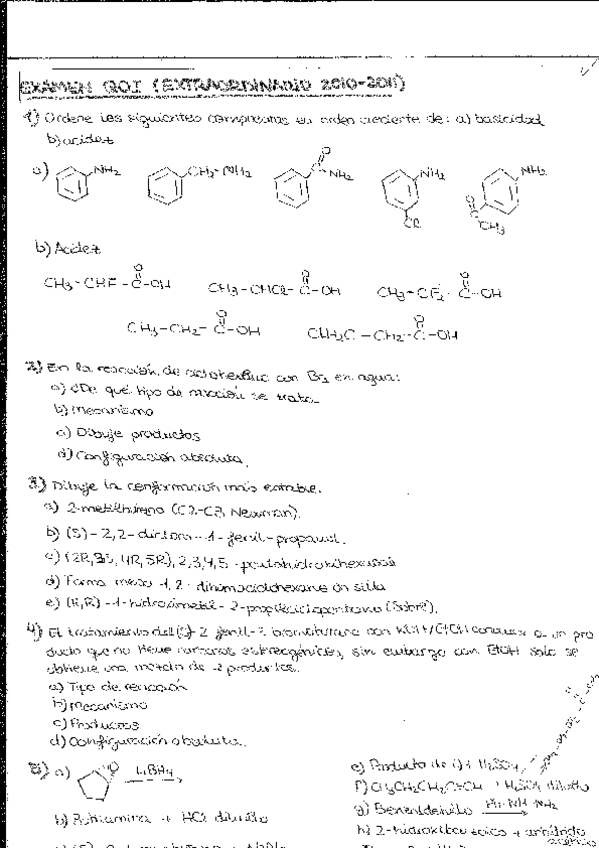 EXÁMEN QOI (EXTRAORDINARIO 2010-2011)
1) Ordene los siguientes compuestos en orden creciente de: a) basicidad
b) acidez
a) NH₂ CH₂-NH₂ O C NH₂ NH₂ Cl NH₂ O C CH₃
b) Acidez
CH₃-CHF-C-OH CH₃-CHCl-C-OH CH₃-CF₂-C-OH
CH₃-CH₂-C-OH ClH₂C-CH₂-C-OH
2) En la reacción de ciclohexeno con Br₂ en agua:
a) ¿De qué tipo de reacción se trata
b) Mecanismo
c) Dibuje productos
d) Configuración absoluta.
3) Dibuje la conformación más estable.
a) 2-metilbutano (C2-C3, Newman).
b) (S)-2,2-dicloro-1-fenil-propanol.
c) (2R,3S,4R,5R), 2,3,4,5-pentahidroxihexanal
d) Forma meso-1,2-ciclohexano en silla
e) (R,R)-1-hidroximetil-2-propilciclopentano (Sobre).
4) El tratamiento del 2-fenil-3-bromobutano con KOH/EtOH conduce a un pro
ducto que no tiene carbonos estereogénicos, sin embargo con EtOH solo se
obtiene una mezcla de 2 productos.
a) Tipo de reacción
b) Mecanismo
c) Productos
d) Configuración absoluta.
5) a) LiBH₄
e) Producto de d) + H₂SO₄
f) CH₃CH₂CH₂C≡CH + H₂SO₄ diluido
b) + HCl diluido
g) Benzaldehído Ph-NH-NH₂
h) 2-hidroxibenzoico + anhídrido